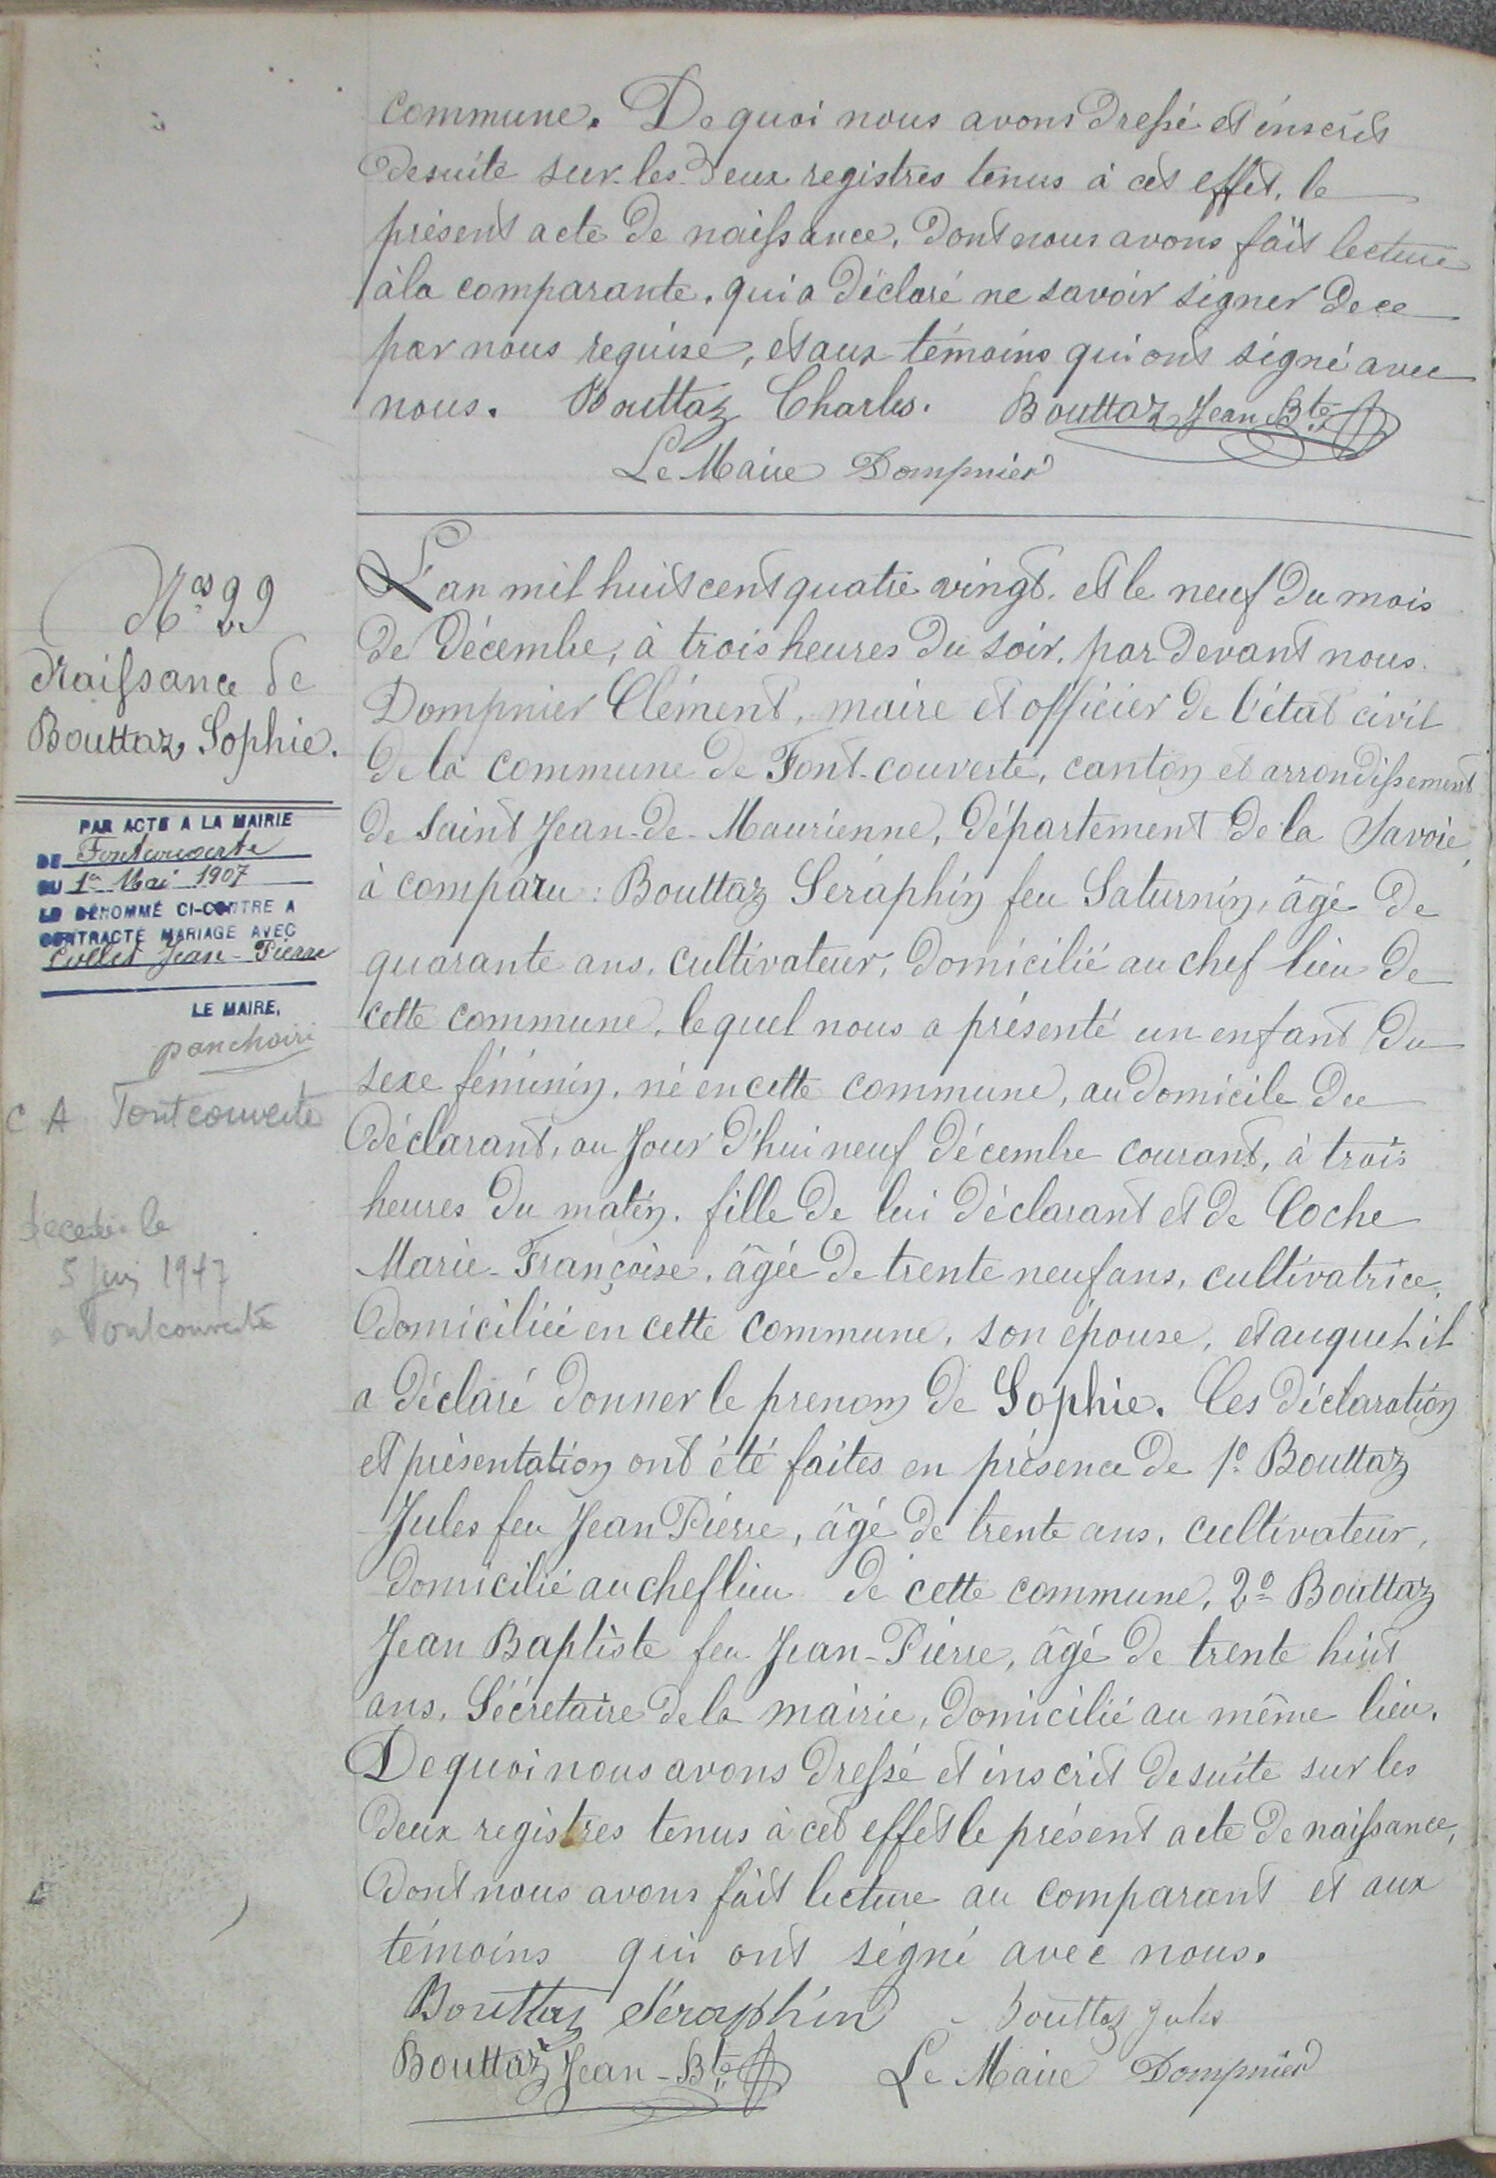 commune. De quoi nous avons dressé et inscrit
desuite sur les deux registres tenus à cet effet, le
présent acte de naissance, dont nous avons fait lecture
à la comparante, qui a déclaré ne savoir signer de ce
par nous requise, et aux témoins qui ont signé avec
nous. Bouttaz Charles. Bouttaz Jean Bte
Le Maire Dompnier
Nos 29
Naissance de
Bouttaz Sophie.
PAR ACTE A LA MAIRIE
DE Fontcouverte
DU 1er Mai 1907
LE DÉNOMMÉ CI-CONTRE A
CONTRACTÉ MARIAGE AVEC
Collet Jean-Pierre
LE MAIRE,
C A Fontcouverte
Décédée le
5 Juin 1947
a Fontcouverte
L'an mil huit cent quatre vingt, et le neuf du mois
de Décembre, à trois heures du soir, par devant nous
Dompnier Clément, maire et officier de l'état civil
de la commune de Font-couverte, canton et arrondissement
de Saint Jean-de-Maurienne, département de la Savoie,
à comparu : Bouttaz Seraphin feu Saturnin, âgé de
quarante ans, cultivateur, domicilié au chef lieu de
cette commune, lequel nous a présenté un enfant du
sexe féminin, né en cette commune, au domicile du
déclarant, au Jour d'hui neuf décembre courant, à trois
heures du matin, fille de lui déclarant et de Coche
Marie-Françoise, âgée de trente neuf ans, cultivatrice,
domiciliée en cette commune, son épouse, et auquel il
a déclaré donner le prenom de Sophie. Ces déclaration
et présentation ont été faites en présence de 1º Bouttaz
Jules feu Jean Pierre, âgé de trente ans, cultivateur,
domicilié au chef lieu de cette commune, 2º Bouttaz
Jean Baptiste feu Jean-Pierre, âgé de trente huit
ans, Sécretaire de la mairie, domicilié au même lieu.
De quoi nous avons dressé et inscrit desuite sur les
deux registres tenus à cet effet le présent acte de naissance,
dont nous avons fait lecture au comparant et aux
témoins qui ont signé avec nous.
Bouttaz Séraphin Bouttaz Jules
Bouttaz Jean-Bte Le Maire Dompnier